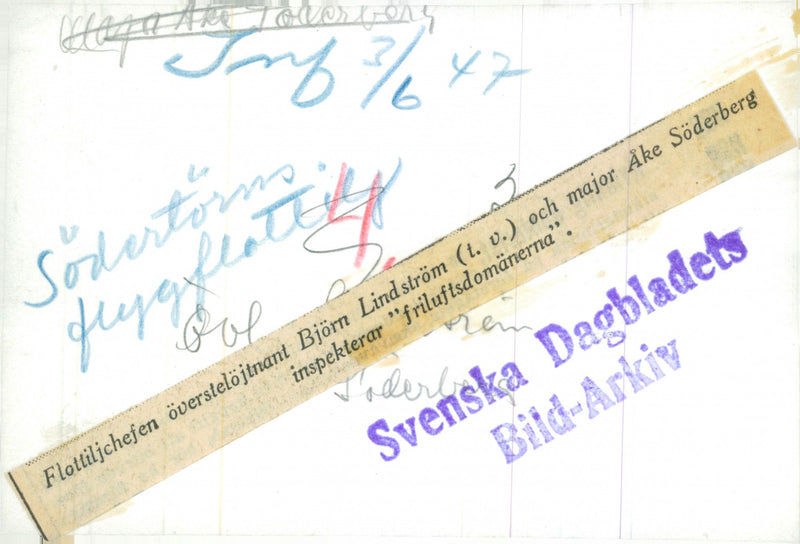 Major Åke Söderberg
Inf 3/6 47
Södertörns
flygflottilj
4.
3
Flottiljchefen överstelöjtnant Björn Lindström (t. v.) och major Åke Söderberg
inspekterar "friluftsdomänerna".
Söderberg
Svenska Dagbladets
Bild-Arkiv